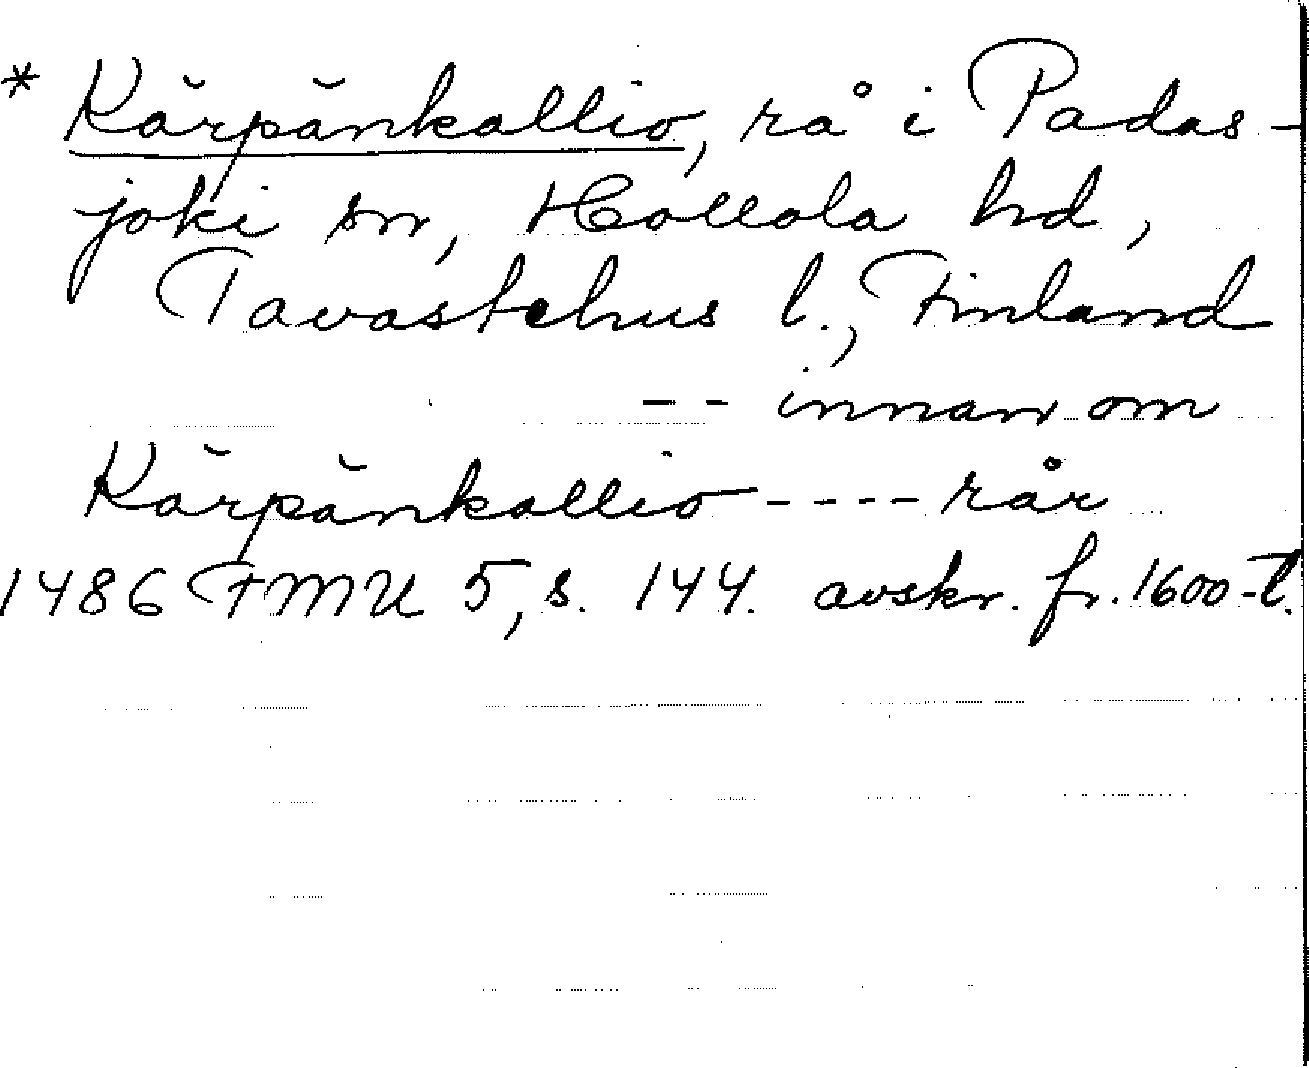 * Kärpänkallio, rå i Padas-
joki sn, Hollola hd,
Tavastehus l., Finland
-- innan om
Kärpänkallio ---- rår
1486 FMU 5, s. 144. avskr. fr. 1600-t.